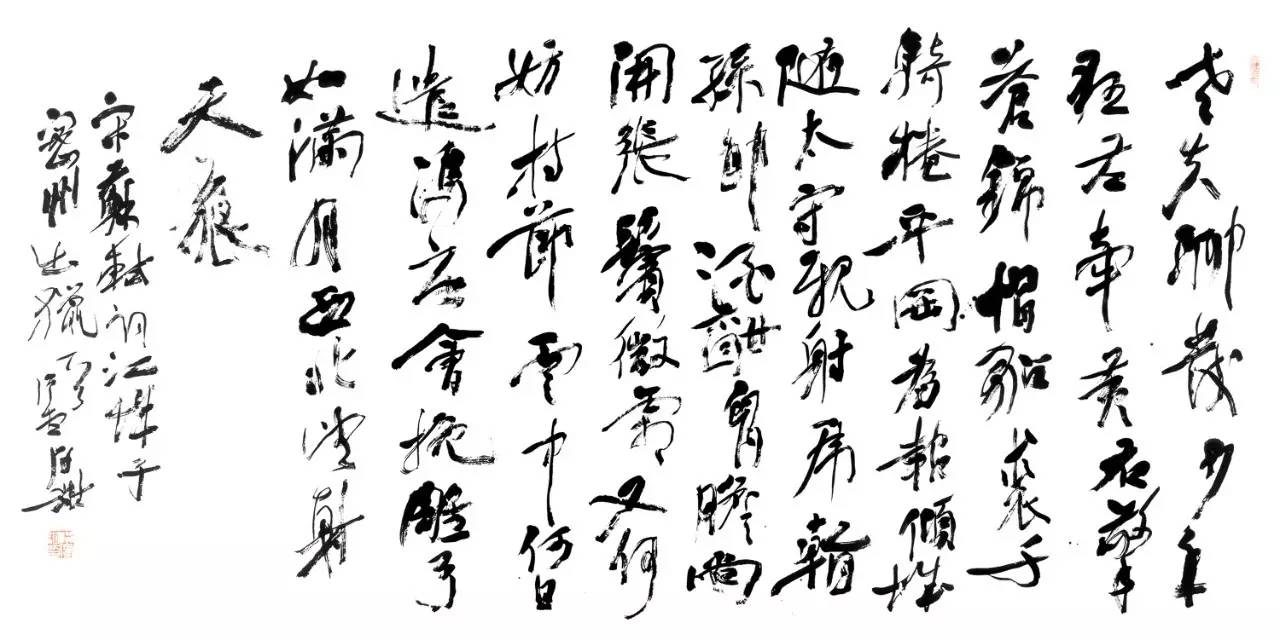 老夫聊發少年
狂左牽黃右擎
蒼錦帽貂裘千
騎捲平岡為報傾城
隨太守親射虎看
孫郎酒酣胸膽尚
開張鬢微霜又何
妨持節雲中何日
遣馮唐會挽雕弓
如滿月西北望射
天狼
宋蘇軾詞江城子
密州出獵